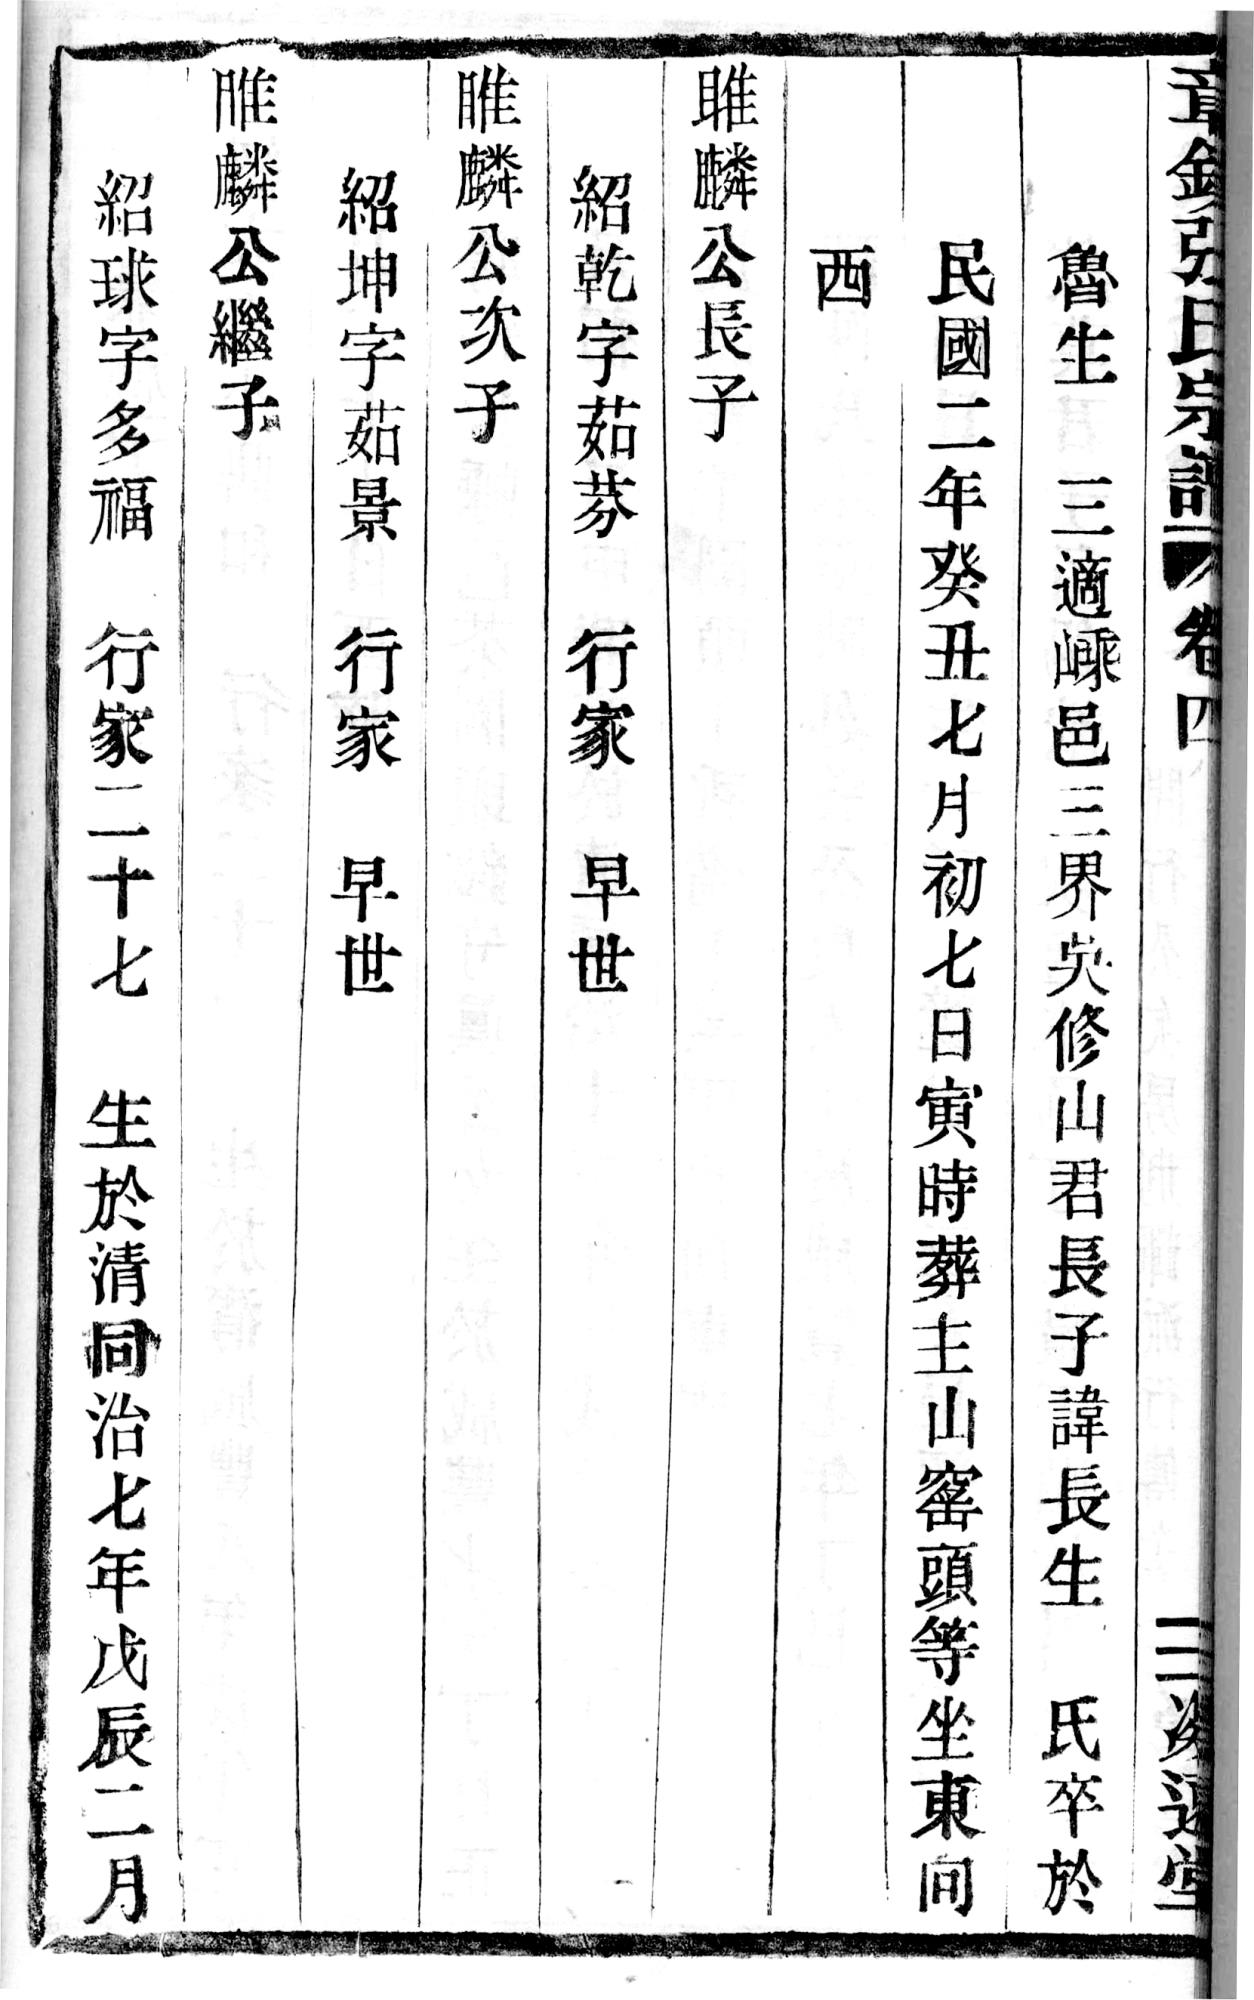 章鎮張氏宗譜 卷四 三 逖遠堂
魯生 三適嵊邑三界吳修山君長子諱長生 氏卒於
民國二年癸丑七月初七日寅時葬主山窰頭等坐東向
西
睢麟公長子
紹乾字茹芬 行家 早世
睢麟公次子
紹坤字茹景 行家 早世
睢麟公繼子
紹球字多福 行家二十七 生於清同治七年戊辰二月